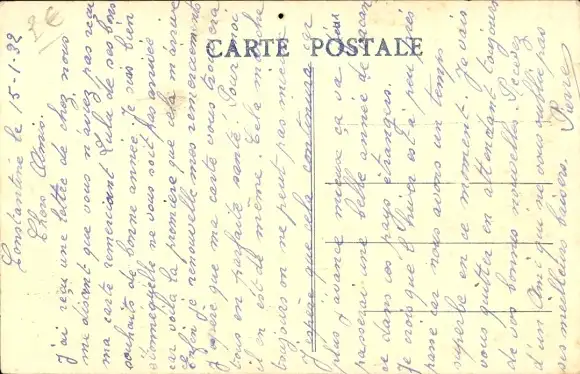 CARTE POSTALE
2€
Constantine le 15-1-32
Chers Amis.
J'ai reçu une lettre de chez nous
me disent que vous n'avez pas reçu
ma carte remerciant Lulu de ses bons
souhaits de bonne année. Je suis bien
qu'elle ne vous soit pas arrivée
car voilà la première que cela m'arrive
enfin je renouvelle mes remerciements
J'espère que ma carte vous trouvera
tous en parfaite santé. Pour moi
il en est de même. Cela marche
toujours on ne peut pas mieux
J'espère que cela continuera car
plus j'avance mieux ça va
passerai une belle année de
ce dans ces pays étrangers.
Je crois que l'hiver est à peu près
passé car nous avons un temps
superbe en ce moment. Je vais
vous quitter en attendant toujours
de vos bonnes nouvelles. Recevez
d'un Ami qui ne vous oublie pas
ses meilleurs baisers.